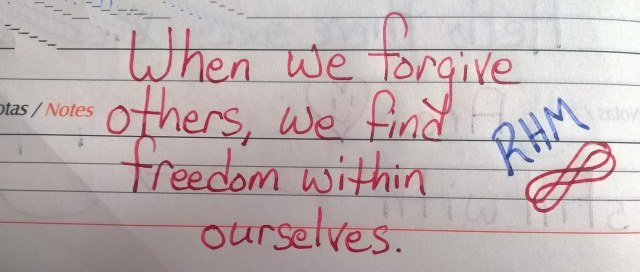 When we forgive
otas / Notes
others, we find
RHM
freedom within
ourselves.